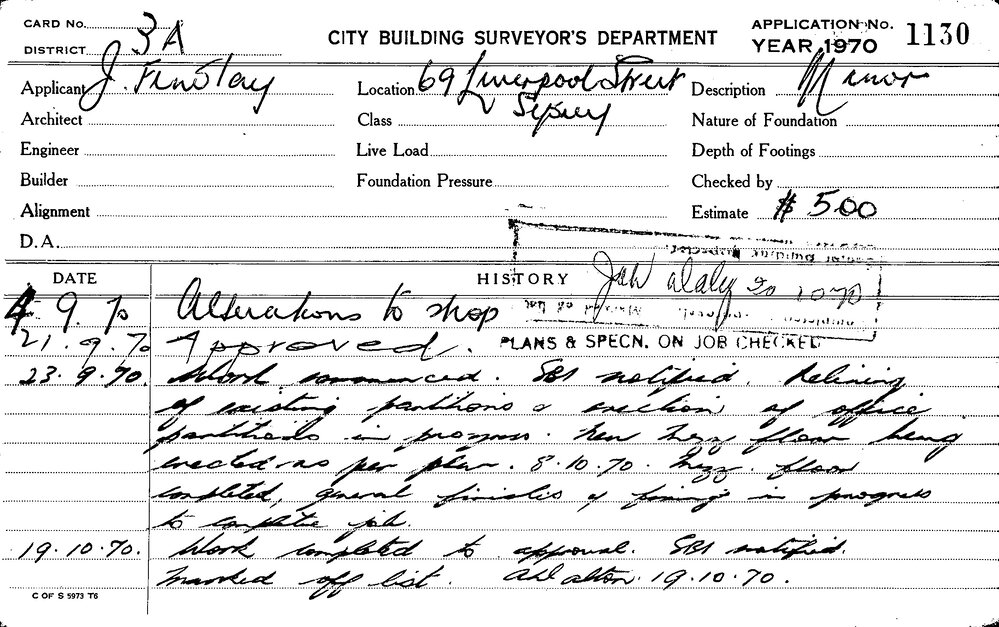 CARD No.
DISTRICT 3A
CITY BUILDING SURVEYOR'S DEPARTMENT
APPLICATION No. 1130
YEAR 1970
Applicant J. Finlay
Location 69 Liverpool Street
Sydney
Description Minor
Architect
Class
Nature of Foundation
Engineer
Live Load
Depth of Footings
Builder
Foundation Pressure
Checked by
Alignment
Estimate $ 500
D.A.
DATE
HISTORY
20 10 70
4.9.70 Alterations to shop
21.9.70 Approved. PLANS & SPECN. ON JOB CHECKED
23.9.70. Work commenced. SBI notified. Relining
of existing partitions & erection of office
partitions in progress. New mezz floor being
erected as per plan. 8.10.70. Mezz. floor
completed, general finishes & fixing in progress
to complete job.
19.10.70. Work completed to approval. SBI notified.
Marked off list. 19.10.70.
C OF S 5973 T6